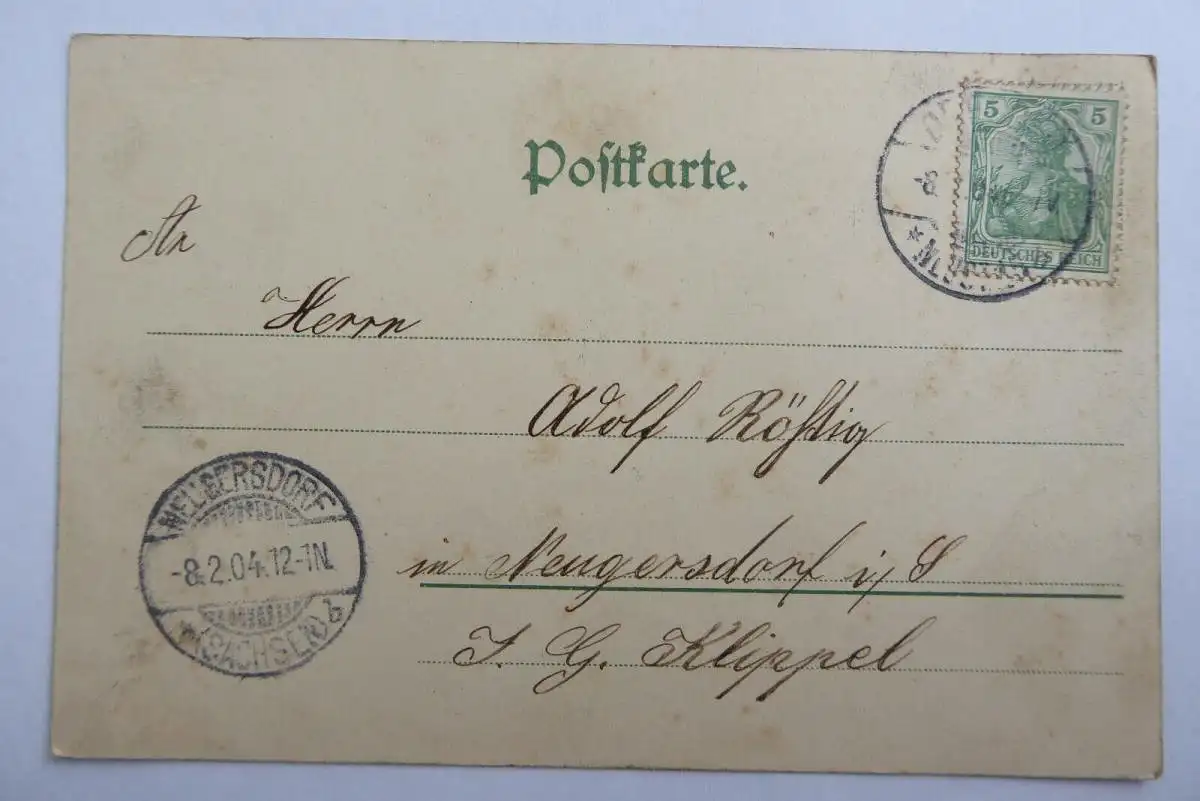 Postkarte.
5 5
DEUTSCHES REICH
An
Herrn
Adolf Rößtig
in Neugersdorf i/S
J. G. Klippel
NEUGERSDORF
-8.2.04.12-1N.
*(SACHSEN) b